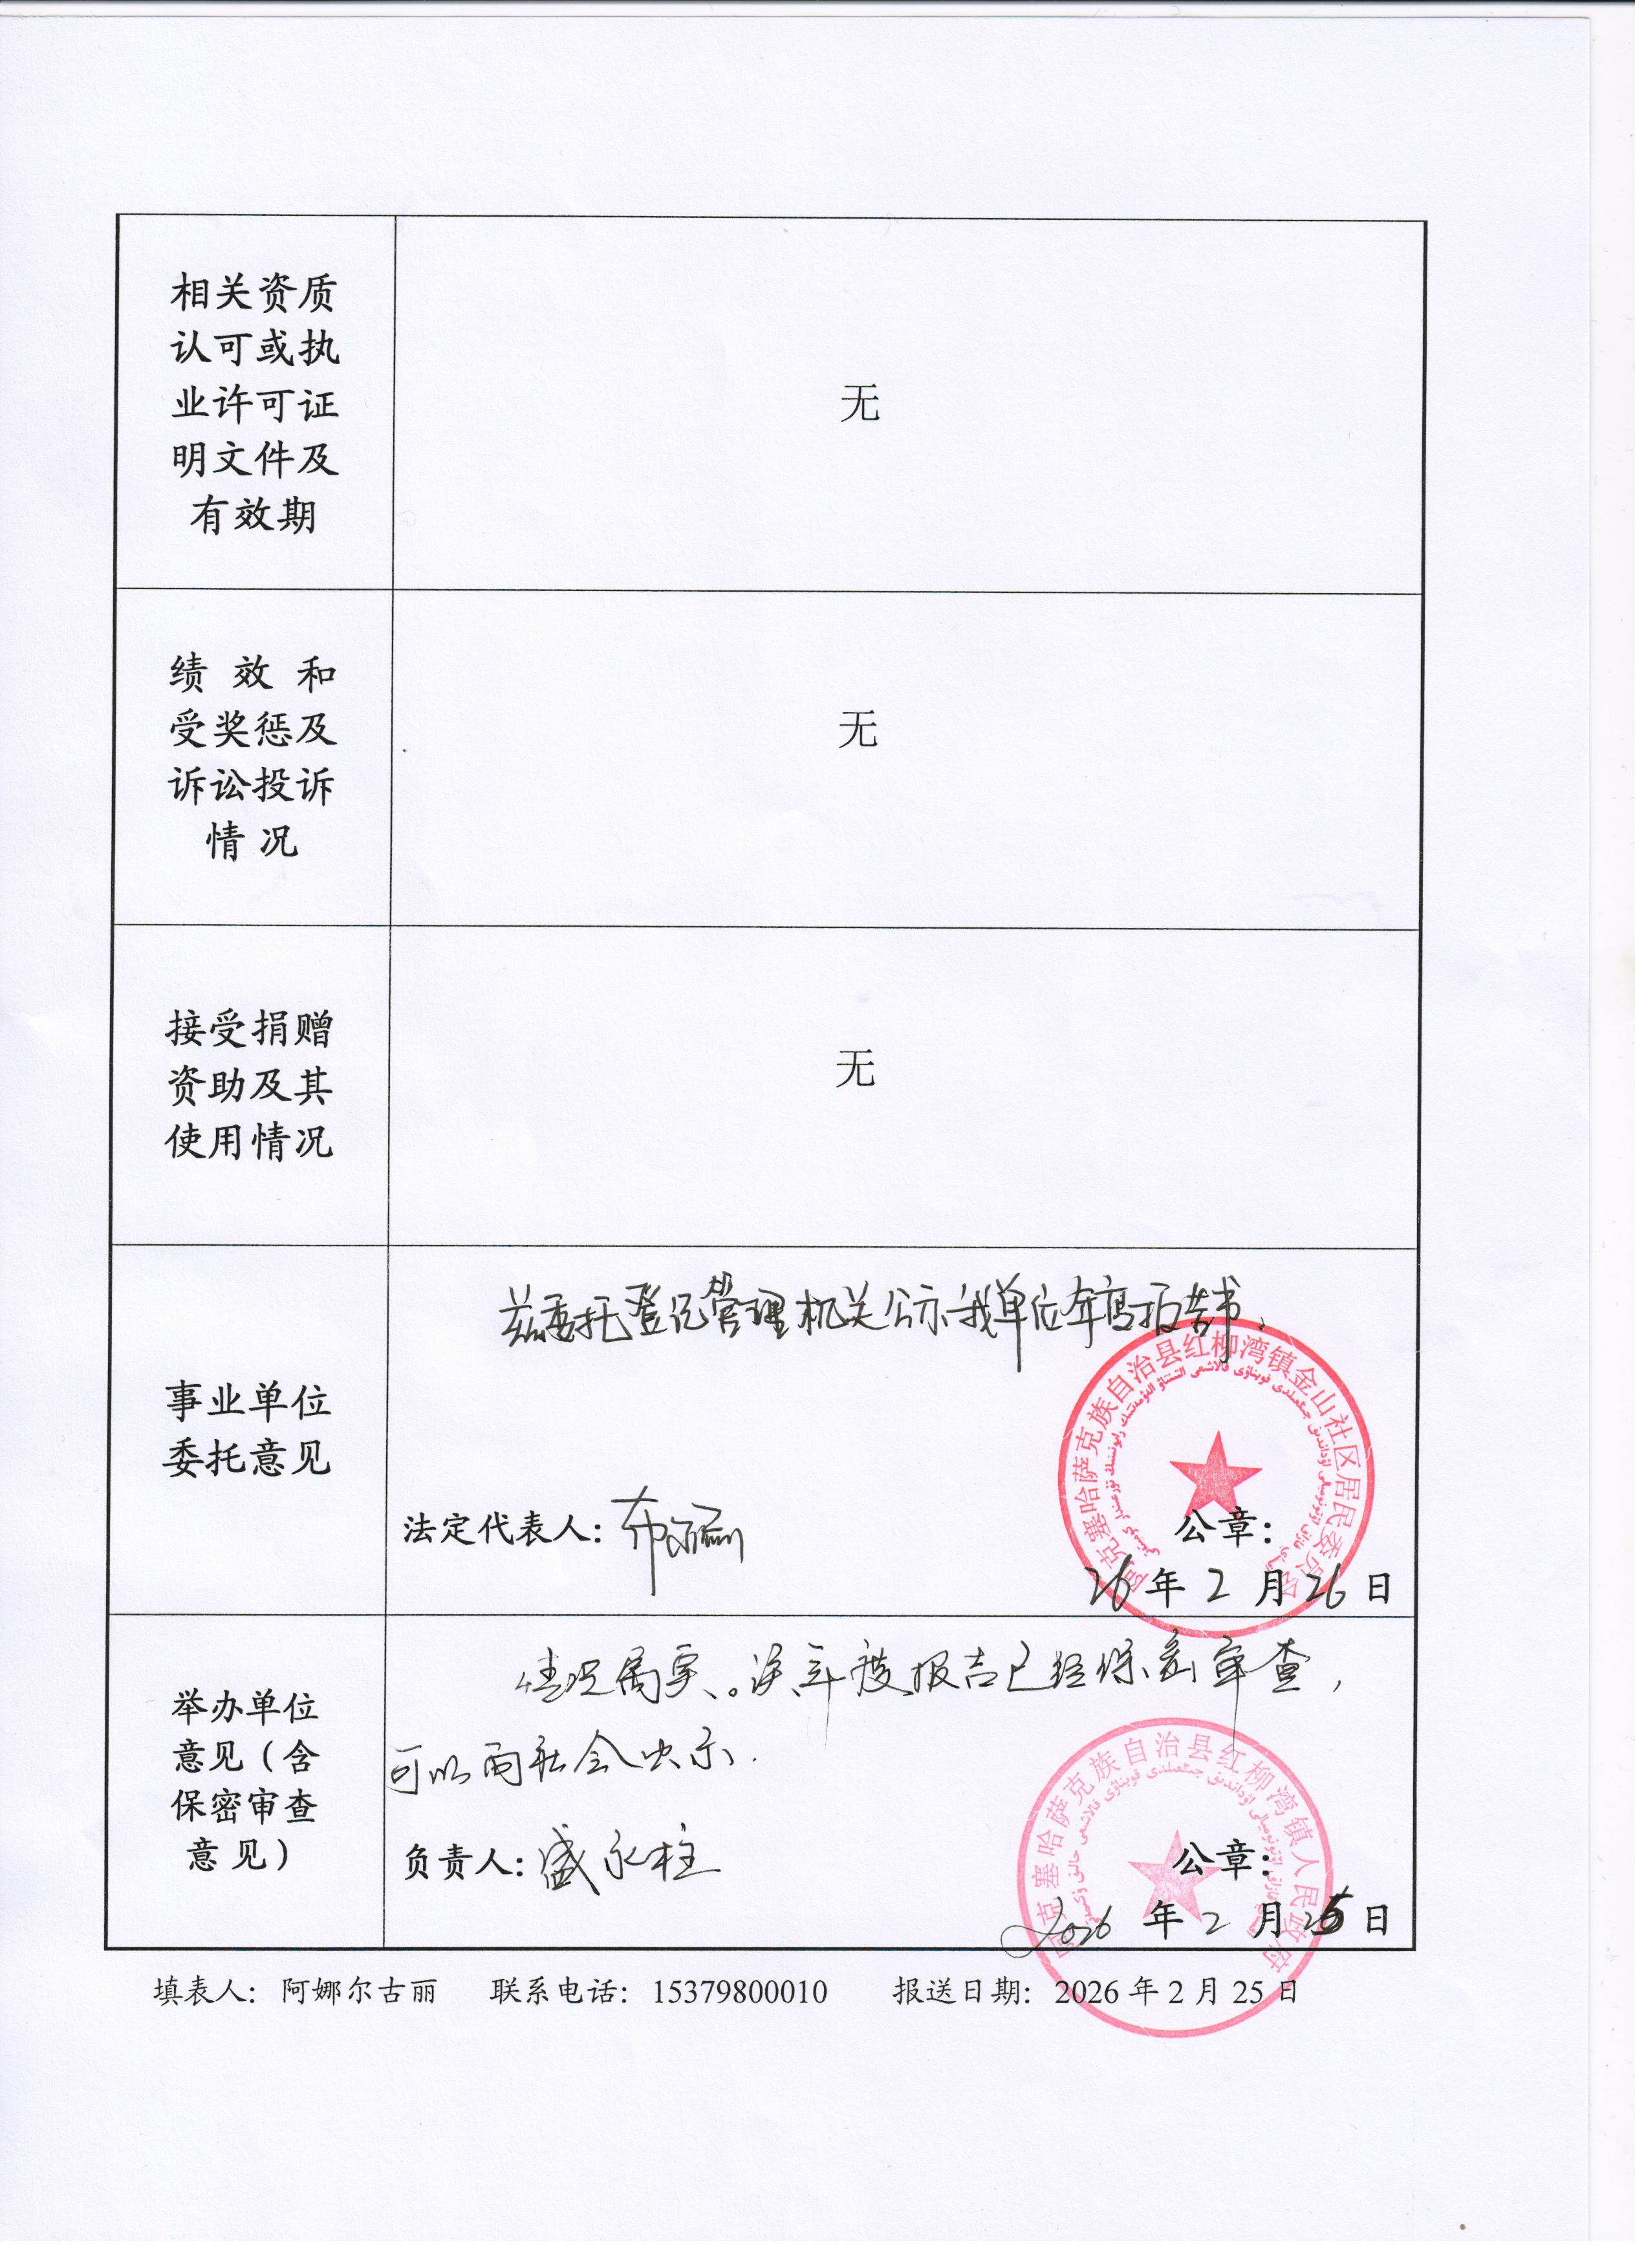 相关资质
认可或执
业许可证
明文件及
有效期
无
绩 效 和
受奖惩及
诉讼投诉
情 况
无
接受捐赠
资助及其
使用情况
无
事业单位
委托意见
兹委托登记管理机关公示我单位年度报告书.
阿克塞哈萨克族自治县红柳湾镇金山社区居民委员会
法定代表人:
公章:
26年2月26日
举办单位
意见(含
保密审查
意见)
情况属实。该年度报告已经保密审查,
可以向社会公示.
阿克塞哈萨克族自治县红柳湾镇人民政府
负责人:盛永柱
公章:
2026年2月25日
填表人: 阿娜尔古丽 联系电话: 15379800010 报送日期: 2026年2月25日